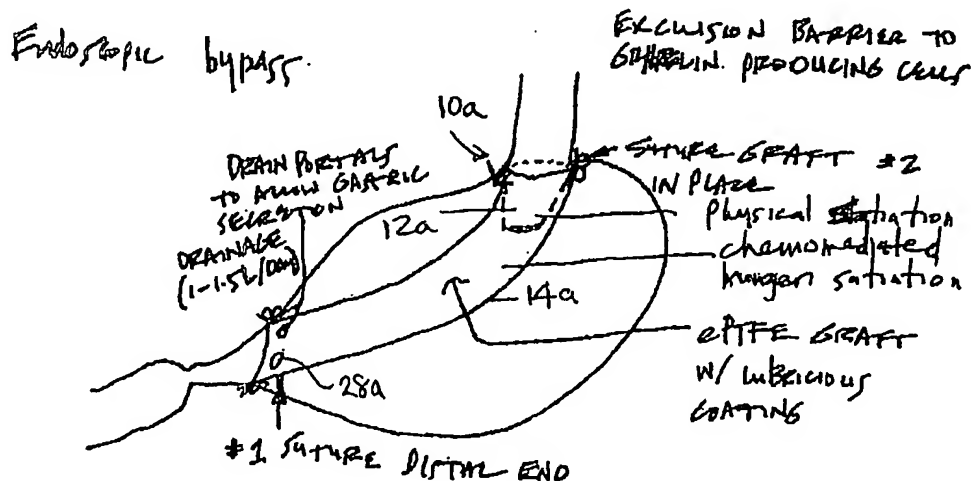 Endoscopic bypass.
EXCLUSION BARRIER TO
GHRELIN PRODUCING CELLS
10a
DRAIN PORTALS
TO ALLOW GASTRIC
SECRETION
DRAINAGE
(1-1.5L/Day)
SUTURE GRAFT #2
IN PLACE
12a
physical satiation
chemomediated
hunger satiation
14a
ePTFE GRAFT
W/ LUBRICIOUS
COATING
28a
#1 SUTURE DISTAL END